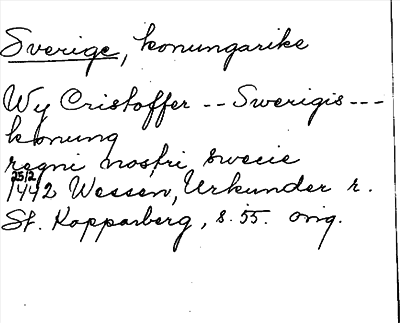 Sverige, konungarike
Wy Cristoffer -- Swerigis ---
konung
regni nostri swecie
25/2
1442 Wessen, Urkunder r.
St. Kopparberg, s. 55. orig.